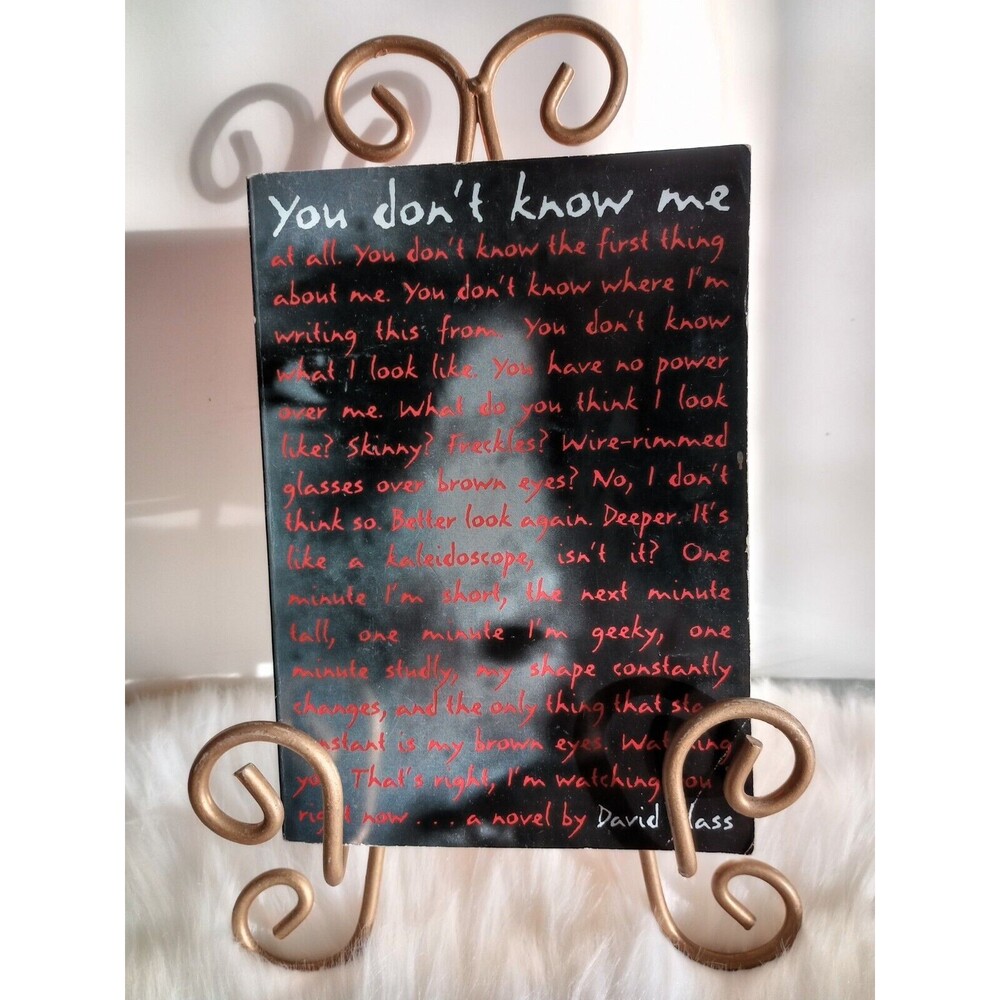 You don't know me
at all. You don't know the first thing
about me. You don't know where I'm
writing this from. You don't know
what I look like. You have no power
over me. What do you think I look
like? Skinny? Freckles? Wire-rimmed
glasses over brown eyes? No, I don't
think so. Better look again. Deeper. It's
like a kaleidoscope, isn't it? One
minute I'm short, the next minute
tall, one minute I'm geeky, one
minute studly, my shape constantly
changes, and the only thing that
is my brown eyes.
That's right, I'm watching
now . . . a novel by David